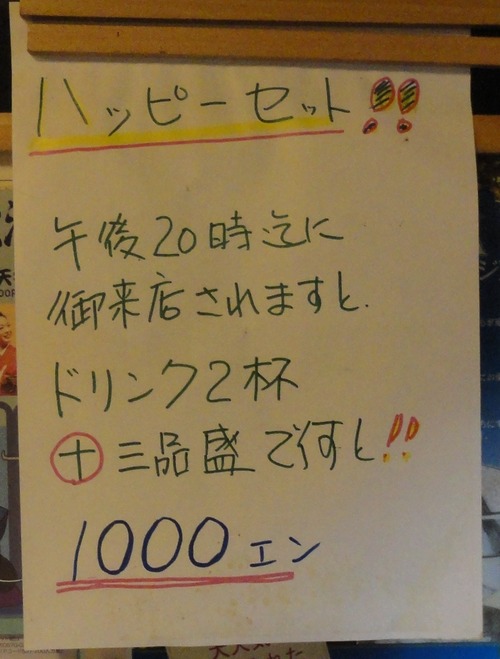 ハッピーセット!!
午後20時迄に
御来店されますと.
ドリンク2杯
+三品盛で何と!!
1000エン